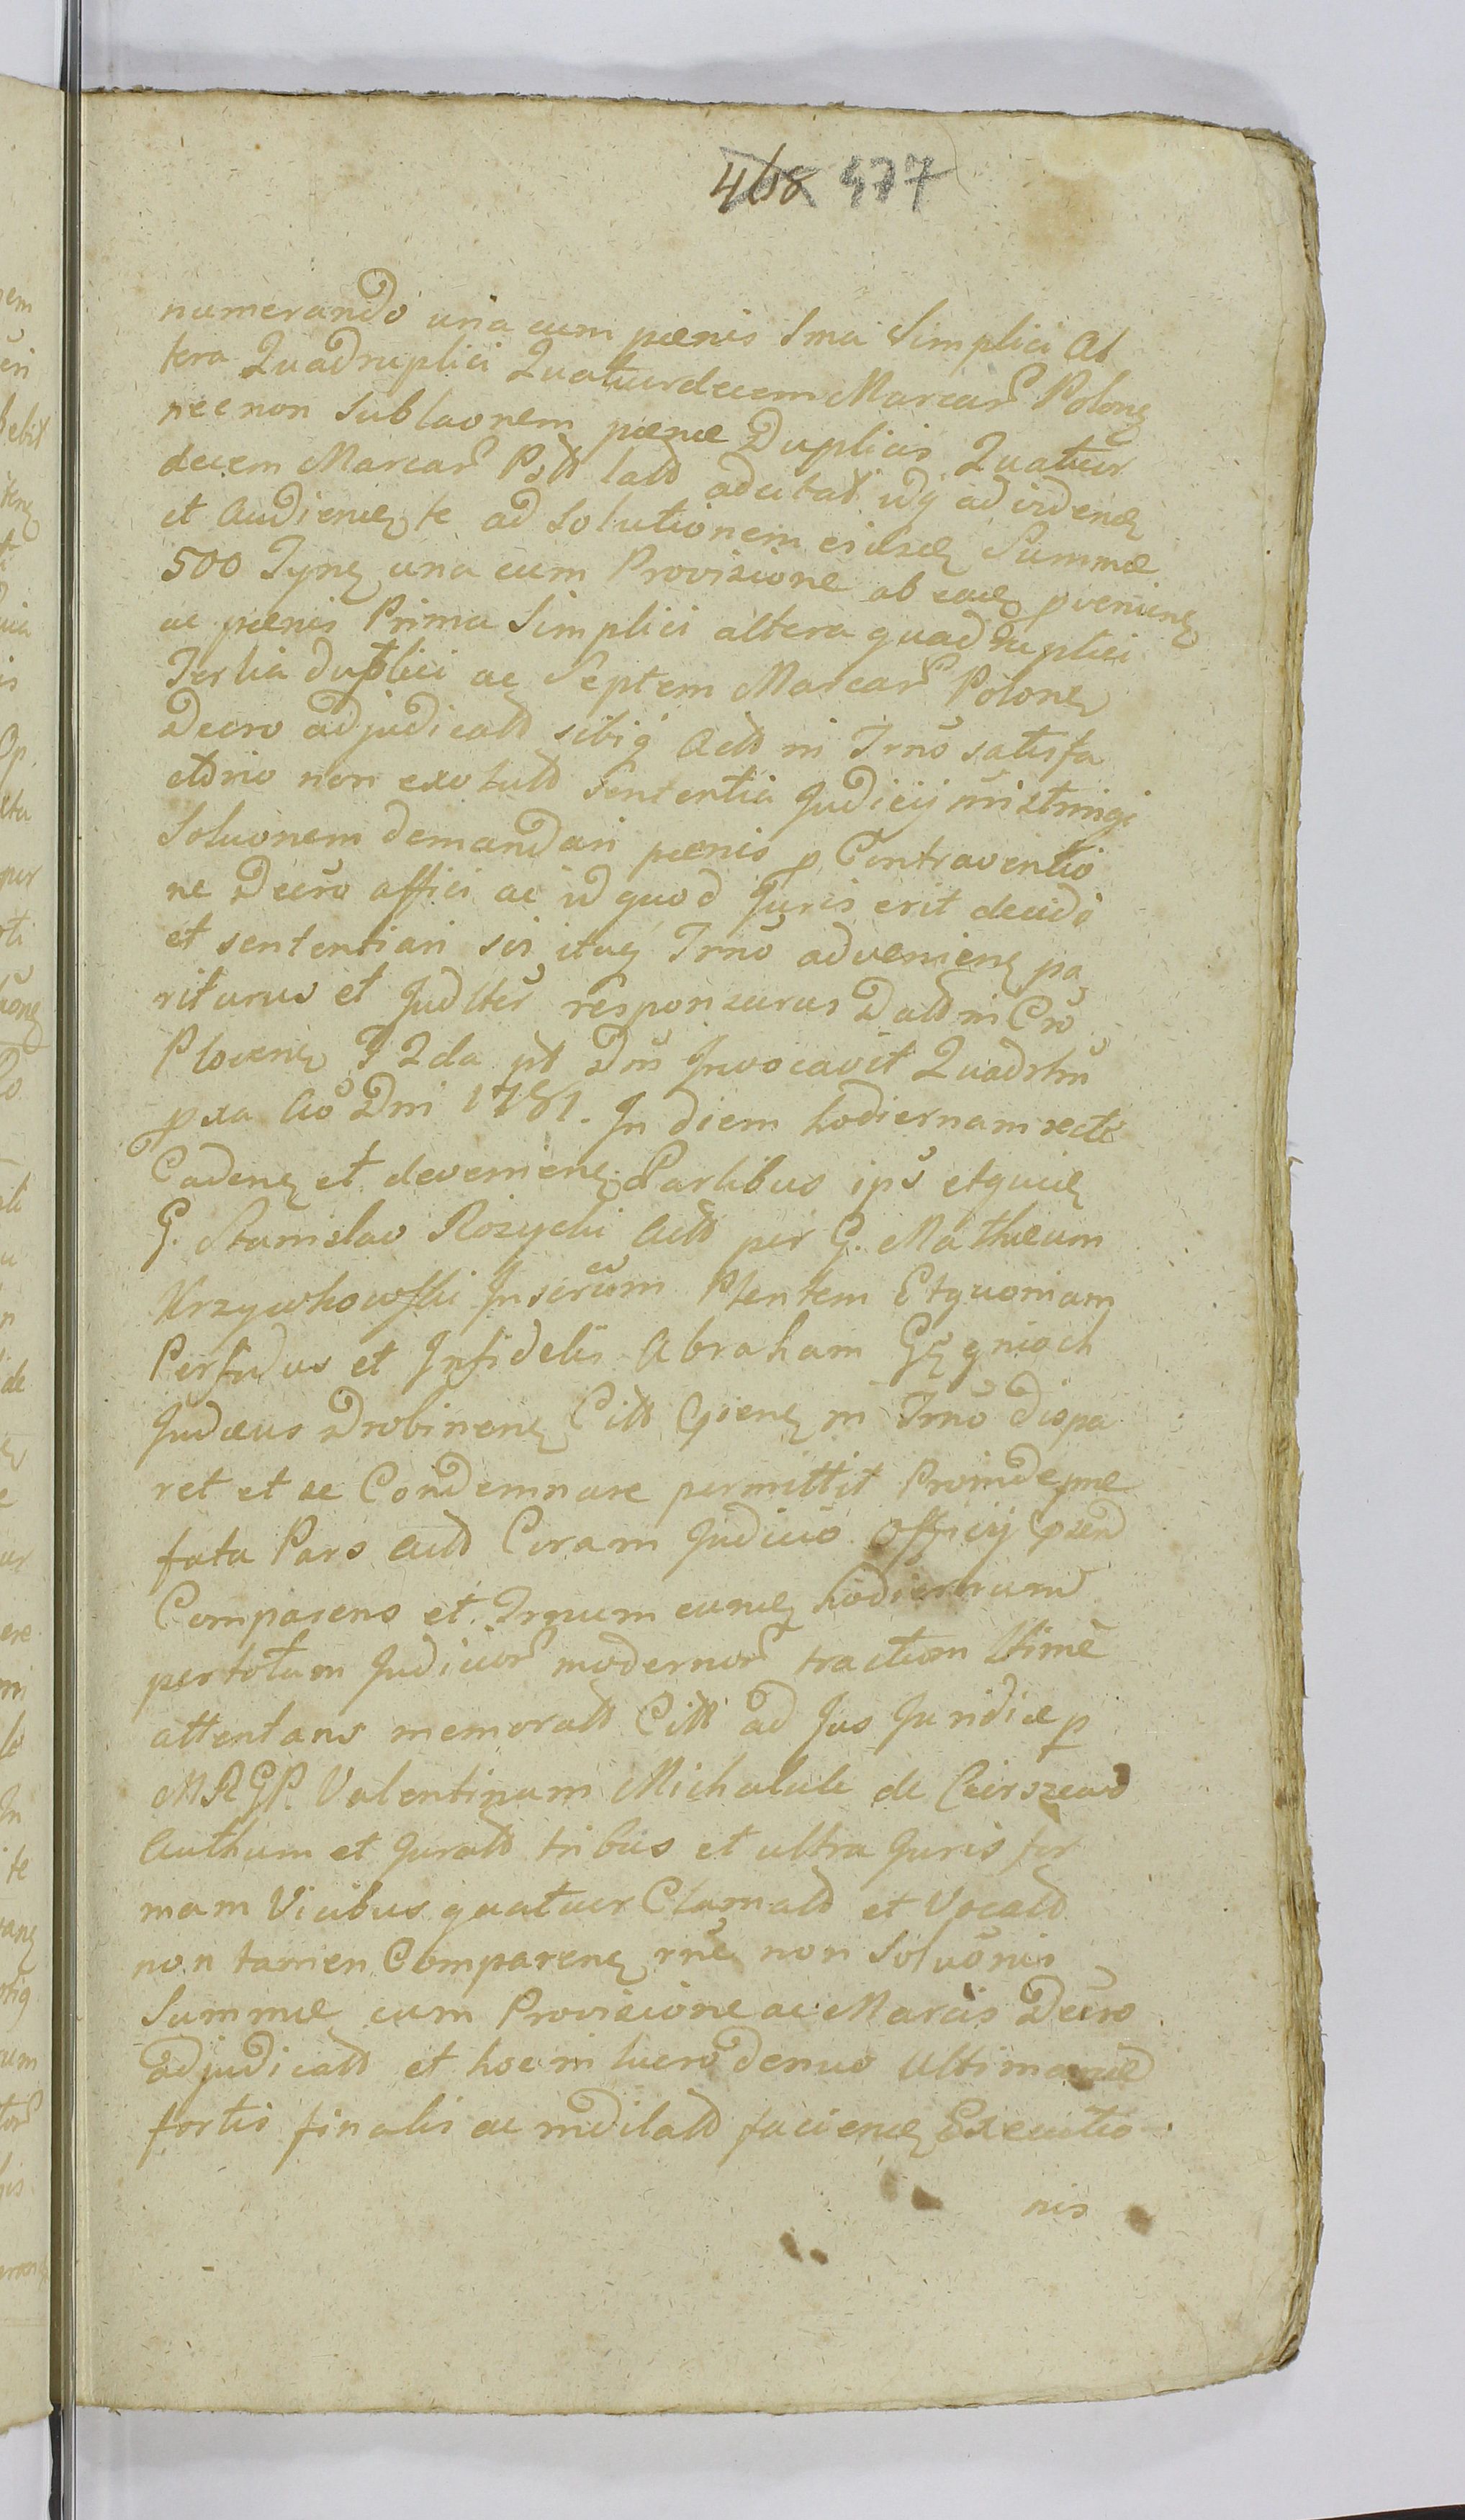 468 477
numerando una cum pænis 1ma Simplici Al
tera Quadruplici Quatuordecem Marcar Polonę
necnon Sublaonem pænæ Duplicis Quatuor
decem Marcar Pold ladd adcitat idq ad videnę
et Audienę te ad Solutionem eiusdę Summæ
500 Tynę una cum Provisione ab eadę pvenienę
ac pænis Prima Simplici altera quadruplici
Tertia duplici ac Septem Marcar Polonę
Decro adjudicatd sibiq Actd in Trno satisfa
ctorio non exolutd Sententia Judicij mi stringi
Soluonem demandari pænis p Contraventio
ne Decro affici ac id quod Juris erit decidi
et sententiari sis itaq Trno advenienę pa
riturus et Judlter responsurus Datd in Cro
Plocenę F 2da pt Dm Invocavit Quadrlm
pxa Ao Dni 1781. In diem hodiernam recte
Cadenę et devenienę Partibus ips etquidę
G. Stanislao Rozycki Actd per G. Mathæum
Krzywkowski Inscrum Ptentem Etquoniam
Perfidus et Infidelis Abraham Gęgnioch
Judæus Drobinenę Citd in Trno dispa
ret et se Condemnare permittit Proinde præ
fata Pars Actd Coram Judicio Officij
Comparens et Trnum eundę hodiernum
per totum Judicior modernor tractum ltime
attentans memoratd Citd ad Jus Juridice p
MRGP. Valentinum Michalak de
Authum et Juratd tribus et ultra Juris for
mam Vicibus quatuor Clamatd et Vocatd
non tamen Comparenę rne non Soluonis
Summæ cum Provisione ac Marcis Decro
adjudicatd et hoc in lucro denuo Ultimariæ
fortis finalis ac indilatd faciendę Executio
nis